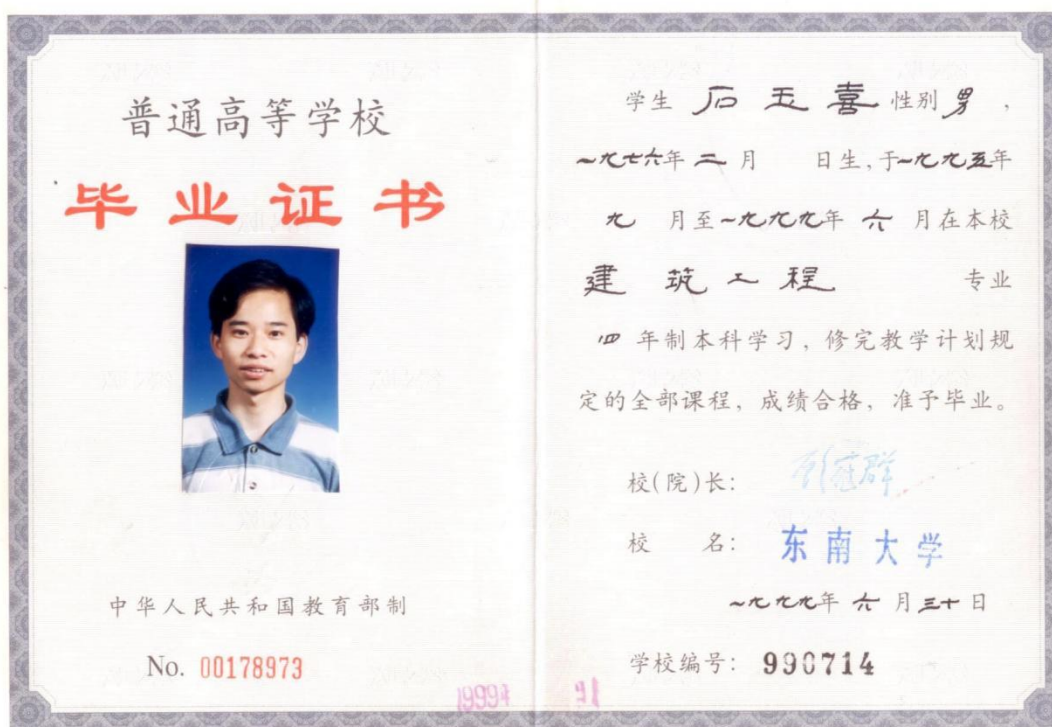 普通高等学校
毕业证书
中华人民共和国教育部制
No. 00178973
学生 石玉喜 性别 男 ,
一九七六年 二 月 日生,于一九九五年
九 月至一九九九年 六 月在本校
建筑工程 专业
四 年制本科学习,修完教学计划规
定的全部课程,成绩合格,准予毕业。
校(院)长:
校 名: 东南大学
一九九九年 六 月 三十 日
学校编号: 990714